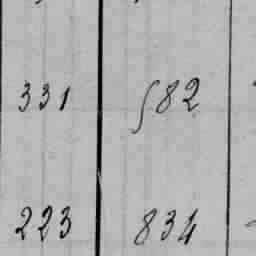 331 582
223 834